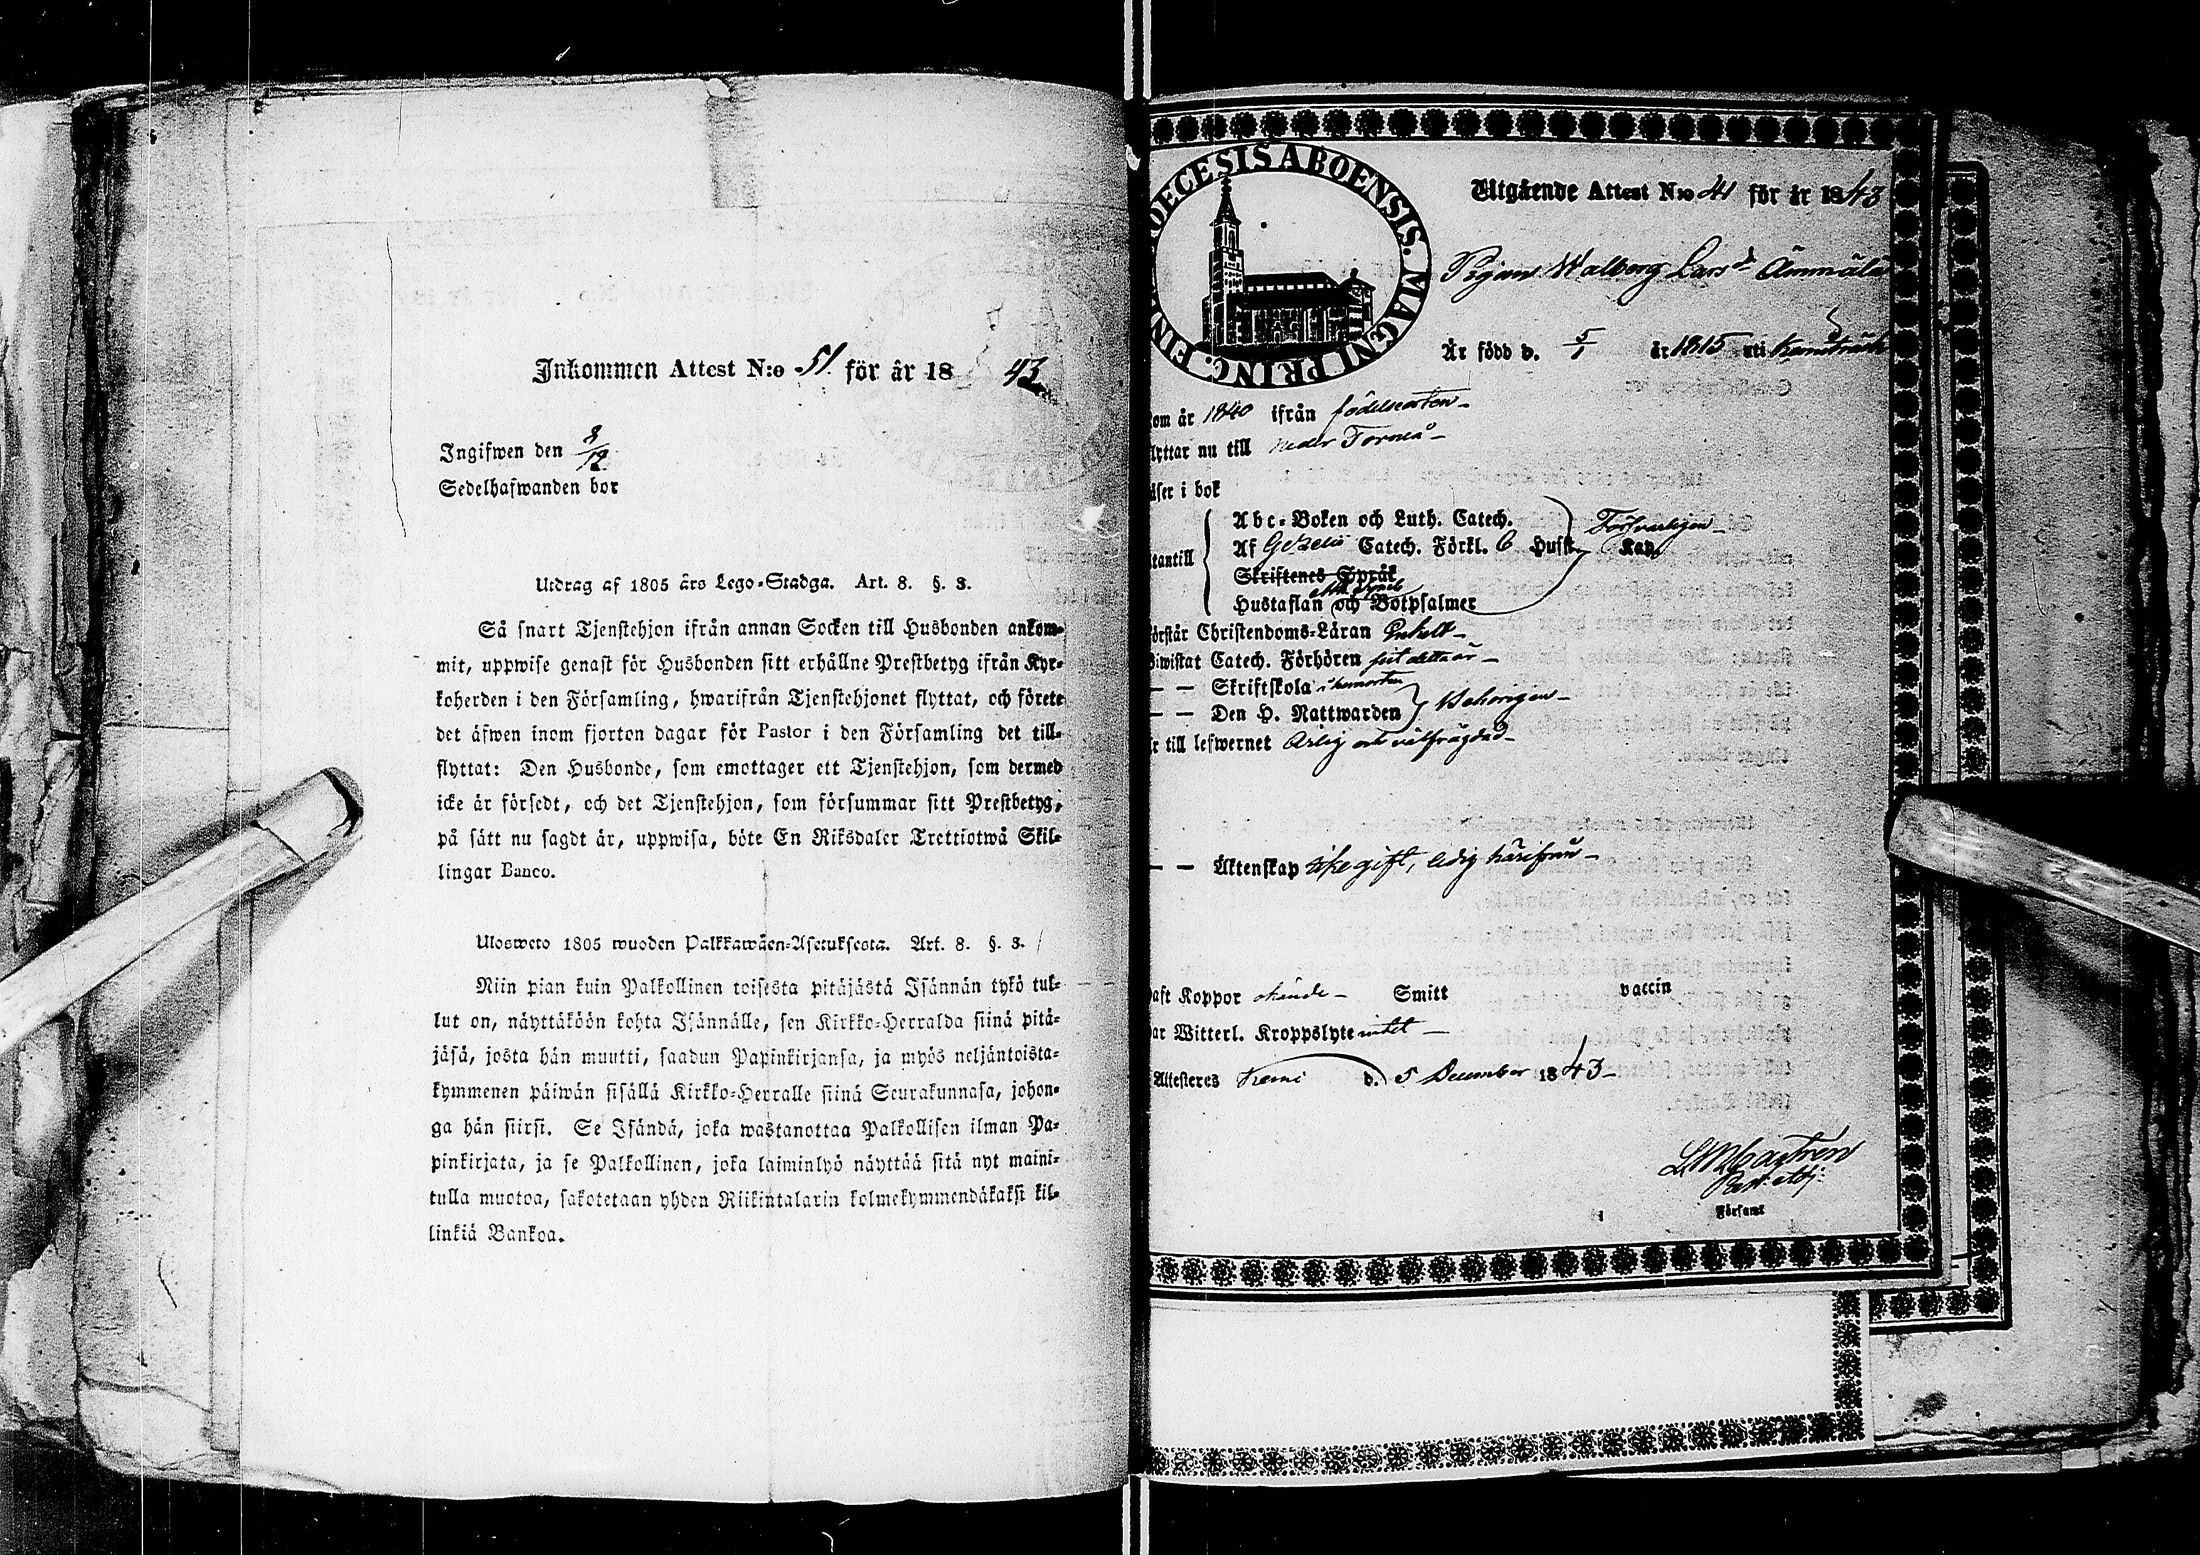 Inkommen Attest N:o 51. för år 18 43
Ingifwen den 8/12
Sedelhafwanden bor
Utdrag af 1805 års Lego-Stadga. Art. 8. §. 3.
Så snart Tjenstehjon ifrån annan Socken till Husbonden ankom-
mit, uppwise genast för Husbonden sitt erhållne Prestbetyg ifrån Kyr-
koherden i den Församling, hwarifrån Tjenstehjonet flyttat, och förete
det äfwen inom fjorton dagar för Pastor i den Församling det till-
flyttat: Den Husbonde, som emottager ett Tjenstehjon, som dermed
icke är försedt, och det Tjenstehjon, som försummar sitt Prestbetyg,
på sätt nu sagdt är, uppwisa, böte En Riksdaler Trettiotwå Skil-
lingar Banco.
Ulosweto 1805 wuoden Palkkawäen-Asetuksesta. Art. 8. §. 3.
Niin pian kuin Palkollinen toisesta pitäjästä Isännän tykö tul-
lut on, näyttäköön kohta Isännälle, sen Kirkko-Herralda siinä pitä-
jäsä, josta hän muutti, saadun Papinkirjansa, ja myös neljäntoista-
kymmenen päiwän sisällä Kirkko-Herralle siinä Seurakunnasa, johon-
ga hän siirsi. Se Isändä, joka wastanottaa Palkollisen ilman Pa-
pinkirjata, ja se Palkollinen, joka laiminlyö näyttää sitä nyt maini-
tulla muotoa, sakotetaan yhden Riikintalarin kolmekymmendäkaksi kil-
linkiä Bankoa.
DECESIS ABOENSIS. MAGNI PRINC. FIN
Utgående Attest N:o 41 för år 1843
Pigan Walborg Lars d:
Är född d. 5/1 år 1815 uti
om år 1840 ifrån födelseorten
flyttar nu till neder Torneå
äser i bok
Abc-Boken och Luth. Catech.
Försvarligen
utantill
Af Gezelii Catech. Förkl. 6 Husst. Kap.
Skriftenes Språk
Hustaflan och Botpsalmer
örstår Christendoms-Läran Enkelt
iwistat Catech. Förhören sist detta år
— — Skriftskola i hemorten
— — Den H. Nattwarden Behörigen
r till lefwernet Ärlig och välfrägdad
— — Äktenskap icke gift, ledig härifrån
aft Koppor okände Smitt vaccin
ar Witterl. Kroppslyte intet
Attesteres Kemi d. 5 December 1843
Castrén
Past. adj:
Församl